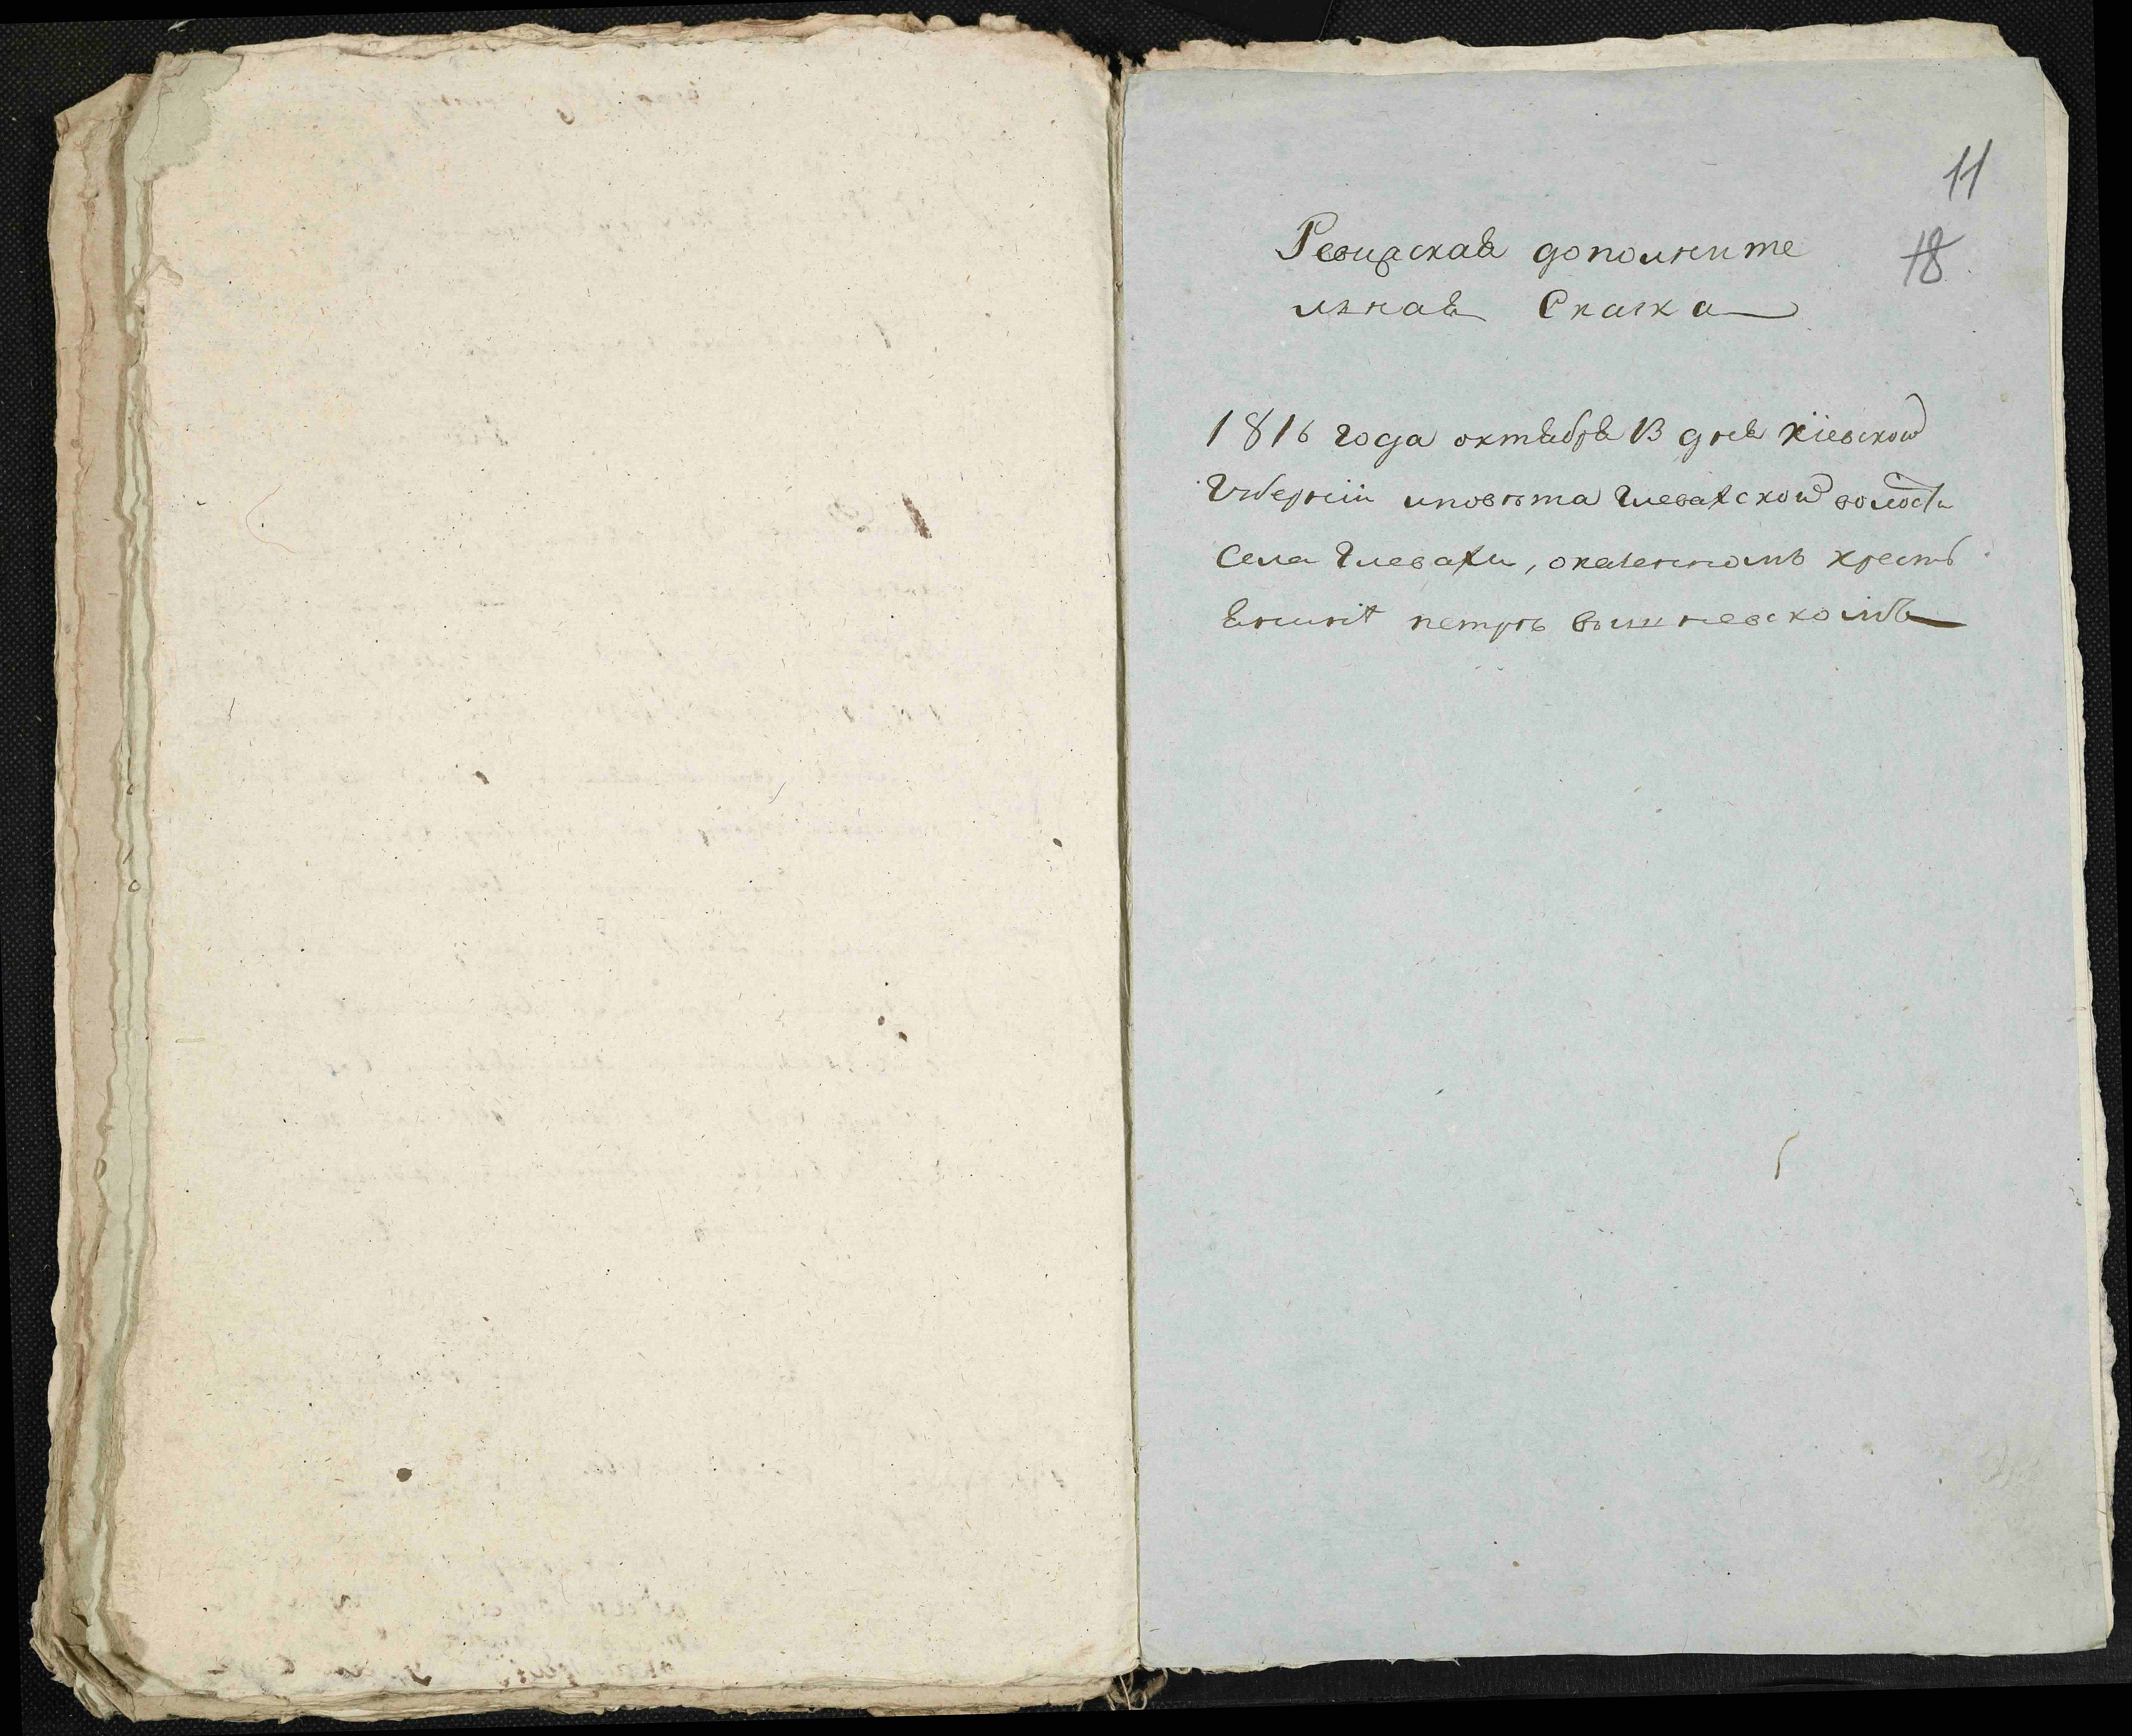 11
Ревизская дополните
18
льная Сказка
1816 года октября 13 дня Кіевской
Губерніи иповѣта Глевахской волости
Села Глевахи, оказенномъ крестъ
янинѣ петрѣ вышневскомъ